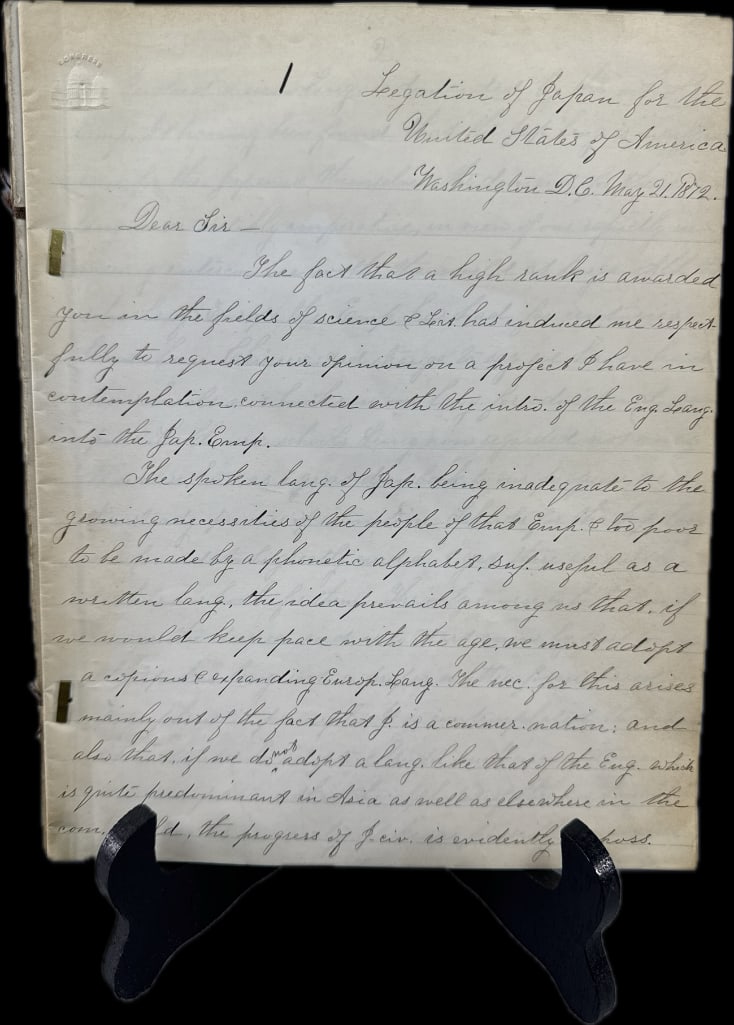 CONGRESS
1
Legation of Japan for the
United States of America
Washington D.C. May 21. 1872.
Dear Sir –
The fact that a high rank is awarded
you in the fields of science & Lit. has induced me respect-
fully to request your opinion on a project I have in
contemplation connected with the intro. of the Eng. Lang.
into the Jap. Emp.
The spoken lang. of Jap. being inadequate to the
growing necessities of the people of that Emp. & too poor
to be made by a phonetic alphabet, suf. useful as a
written lang., the idea prevails among us that, if
we would keep pace with the age, we must adopt
a copious & expanding Europ. Lang. The nec. for this arises
mainly out of the fact that J. is a commer. nation; and
also that, if we do not adopt a lang. like that of the Eng. which
is quite predominant in Asia as well as elsewhere in the
com. ld, the progress of J. civ. is evidently poss.